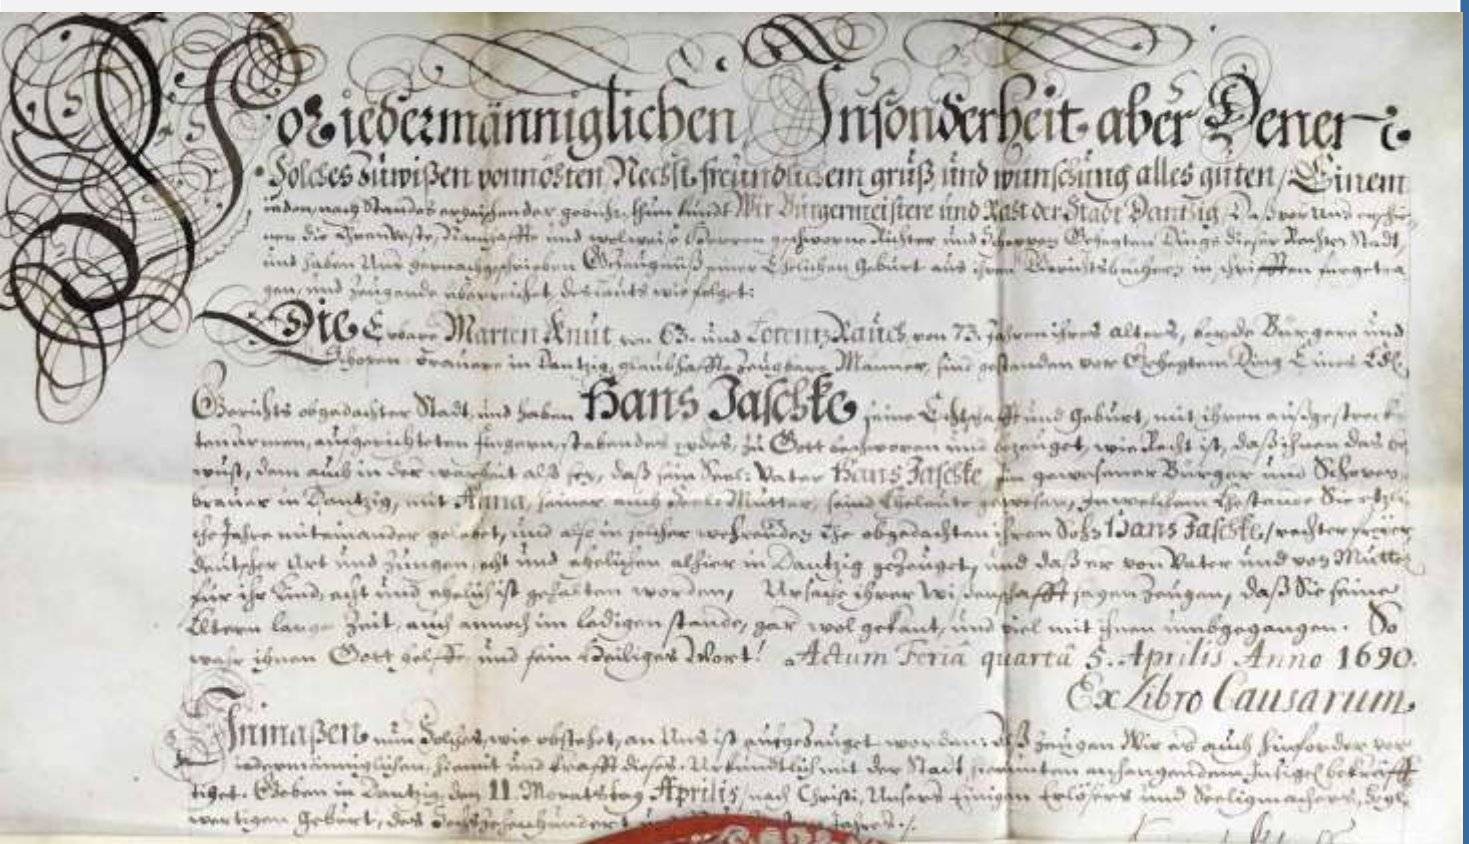 Vor iedermänniglichen Insonderheit aber Denen
Solches zuwißen vonnöhten Nechst freundlichem gruß und wünschung alles guten / Einem
ieden, nach Standes gebühr, thun kundt Wir Bürgermeistere und Raht der Stadt Dantzig, Daß vor Uns
die und wolweise Herren geschworne Richter und Schöppen Gehegten Dings dieser Rechten Stadt,
und haben Uns hernachgeschrieben Gezeugnüß einer Ehelichen Geburt aus ihren Gerichtsbücheren in schrifften
gen, und überreichet, des lauts wie folget:
Die Erbare Marten Knüt von 63. und Lorentz Rauch von 73. Jahren ihres alters, beyde Bürgere und
in Dantzig, glaubhaffte Männer, sind gestanden vor Gehegtem Ding Eines Edl.
Gerichts obgedachter Stadt, und haben Hans Jaschke seine und Geburt, mit ihren außgestreck-
ten armen, aufgerichteten fingern, stabendes eydes, zu Gott beschworen und bezeuget, wie Recht ist, daß ihnen das
wust, dem auch in der warheit also sey, daß sein Seel: Vater Hans Jaschke ein gewesener Bürger und
brauer in Dantzig, mit Anna, seiner auch Seel: Mutter, seind Eheleute gewesen, In welchem Ehestande Sie etzli-
che Jahre miteinander gelebet, und also in solcher wehrenden Ehe obgedachten ihren Sohn Hans Jaschke / rechter freyer
deutscher Art und Zungen, echt und ehelichen alhier in Dantzig gezeuget, und daß er von Vater und von Mutter
für ihr Kind, echt und ehelich ist gehalten worden, Ursache ihrer Wißenschafft sagen Zeugen, daß Sie seine
Eltern lange Zeit, auch annoch im ledigen stande, gar wol gekant, und viel mit ihnen umbgegangen. So
wahr ihnen Gott helffe, und sein Heiliges Wort! Actum Feriâ quartâ 5. Aprilis Anno 1690.
Ex Libro Causarum.
Inmaßen nun Solches, wie obstehet, an Uns ist außgezeuget worden; Alß zeugen Wir es auch hinforder vor
iedermänniglichen, hiemit und krafft dieses. Urkundtlich mit der Stadt anhangendem Insigel bekräff-
tiget. Geben in Dantzig, den 11. Monatstag Aprilis / nach Christi, Unsers Einigen Erlösers und Seeligmachers,
wertigen Geburt, des Sechszehenhundert Jahres.